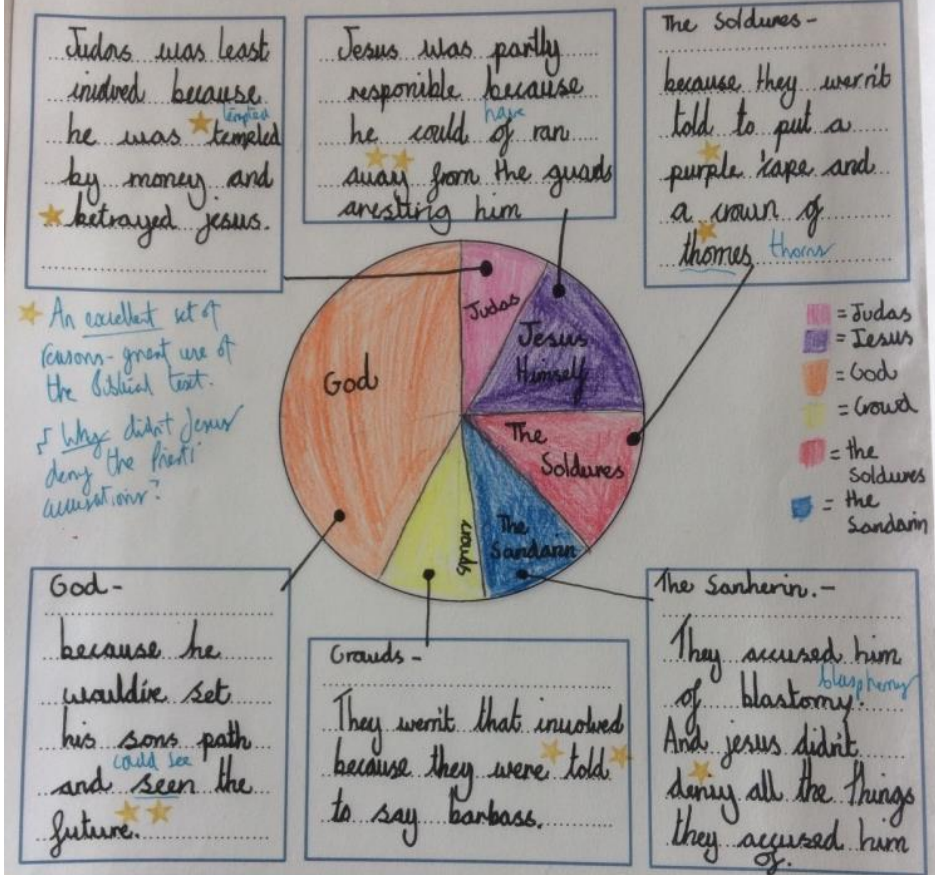 Judas was least
iniolved because
tempted
he was temeled
by money and
betrayed jesus.
Jesus was partly
responible because
have
he could of ran
away from the guards
arestting him
The Soldures -
because they wern't
told to put a
purple cape and
a crown of
thornes thorns
An excellent set of
reasons - great use of
the Biblical text.
Why didn't Jesus
deny the Priests'
accusations?
God
Judas
Jesus
Himself
The
Soldures
The
Sandarin
crowds
= Judas
= Jesus
= God
= Crowd
= the
Soldures
= the
Sandarin
God -
because he
would've set
his sons path
could see
and seen the
future.
Crouds -
They wern't that involved
because they were told
to say barbass.
The Sanherin. -
They accused him
blasphemy
of blastomy.
And jesus didn't
deniy all the things
they accused him
of.